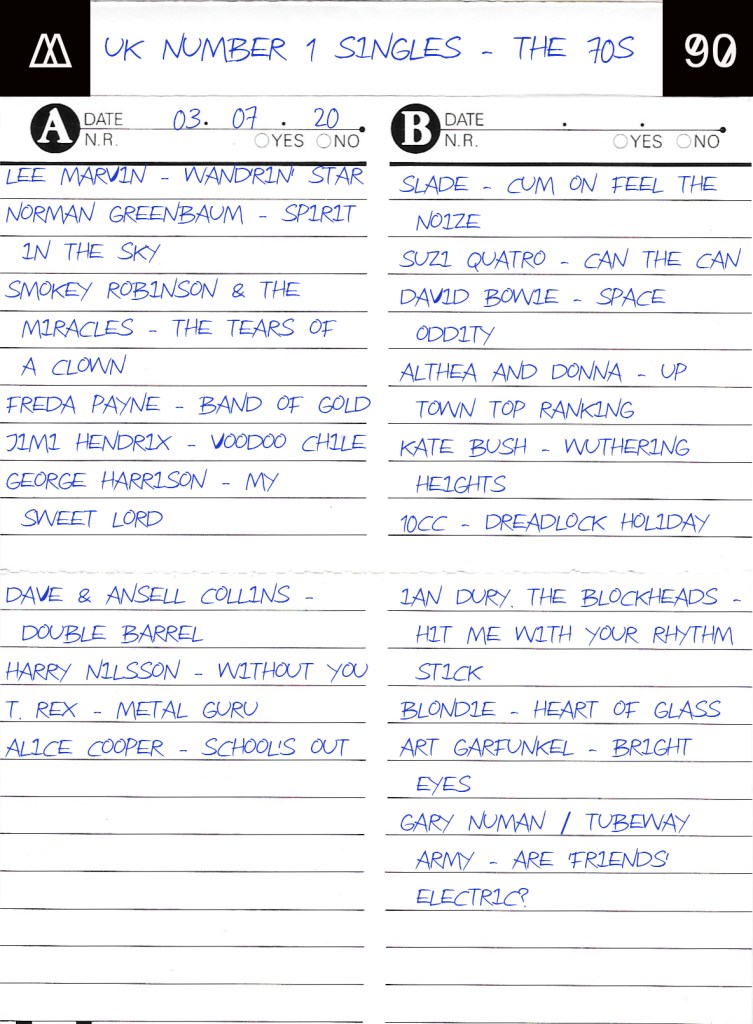 UK NUMBER 1 SINGLES - THE 70S
90
A DATE 03. 07. 20
N.R. YES NO
LEE MARVIN - WANDRIN' STAR
NORMAN GREENBAUM - SPIRIT
IN THE SKY
SMOKEY ROBINSON & THE
MIRACLES - THE TEARS OF
A CLOWN
FREDA PAYNE - BAND OF GOLD
JIMI HENDRIX - VOODOO CHILE
GEORGE HARRISON - MY
SWEET LORD
DAVE & ANSELL COLLINS -
DOUBLE BARREL
HARRY NILSSON - WITHOUT YOU
T. REX - METAL GURU
ALICE COOPER - SCHOOL'S OUT
B DATE . .
N.R. YES NO
SLADE - CUM ON FEEL THE
NOIZE
SUZI QUATRO - CAN THE CAN
DAVID BOWIE - SPACE
ODDITY
ALTHEA AND DONNA - UP
TOWN TOP RANKING
KATE BUSH - WUTHERING
HEIGHTS
10CC - DREADLOCK HOLIDAY
IAN DURY. THE BLOCKHEADS -
HIT ME WITH YOUR RHYTHM
STICK
BLONDIE - HEART OF GLASS
ART GARFUNKEL - BRIGHT
EYES
GARY NUMAN / TUBEWAY
ARMY - ARE 'FRIENDS'
ELECTRIC?